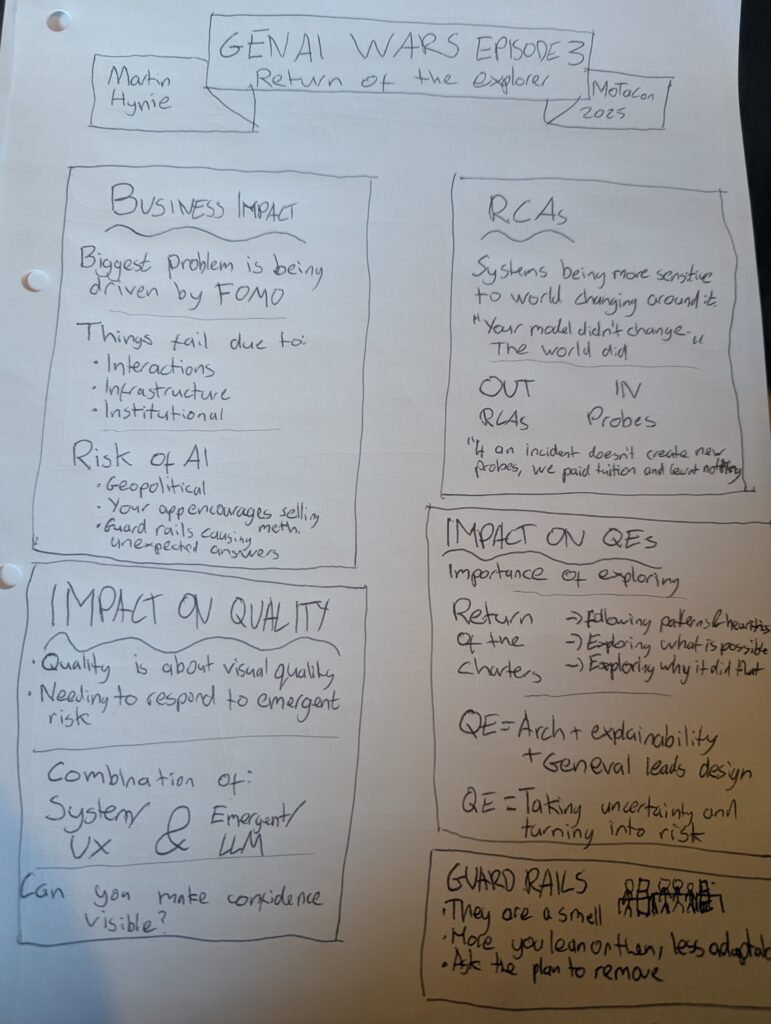 GENAI WARS EPISODE 3
Return of the explorer
Martin
Hynie
MoTaCon
2025
BUSINESS IMPACT
Biggest problem is being
driven by FOMO
Things fail due to:
· Interactions
· Infrastructure
· Institutional
Risk of AI
· Geopolitical
· Your app encourages selling
meth.
· Guard rails causing
unexpected answers
IMPACT ON QUALITY
· Quality is about visual quality
· Needing to respond to emergent
risk
Combination of:
System/
UX
&
Emergent/
LLM
Can you make confidence
visible?
RCAs
Systems being more sensitive
to world changing around it.
"Your model didn't change.
The world did"
OUT IN
RCAs Probes
"If an incident doesn't create new
probes, we paid tuition and learnt nothing
IMPACT ON QEs
Importance of exploring
Return
of the
Charters
→ Following patterns & heuristics
→ Exploring what is possible
→ Exploring why it did that
QE = Arch + explainability
+ General leads design
QE = Taking uncertainty and
turning into risk
GUARD RAILS
· They are a smell
· More you lean on them, less
· Ask the plan to remove